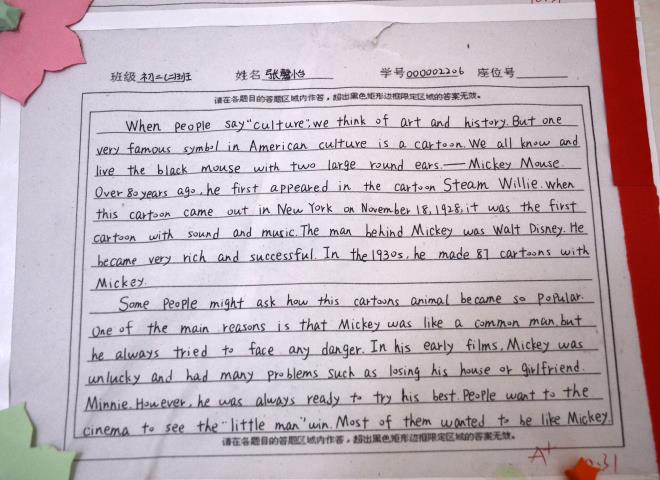 10.31
班级 初二(二)班 姓名 张馨怡 学号 000002206 座位号
请在各题目的答题区域内作答，超出黑色矩形边框限定区域的答案无效。
When people say "culture", we think of art and history. But one
very famous symbol in American culture is a cartoon. We all know and
live the black mouse with two large round ears.——Mickey Mouse.
Over 80 years ago, he first appeared in the cartoon Steam Willie. When
this cartoon came out in New York on November 18, 1928, it was the first
cartoon with sound and music. The man behind Mickey was Walt Disney. He
became very rich and successful. In the 1930s, he made 87 cartoons with
Mickey.
Some people might ask how this cartoons animal became so popular.
One of the main reasons is that Mickey was like a common man, but
he always tried to face any danger. In his early films, Mickey was
unlucky and had many problems such as losing his house or girlfriend.
Minnie. However, he was always ready to try his best. People want to the
cinema to see the "little man" win. Most of them wanted to be like Mickey.
请在各题目的答题区域内作答，超出黑色矩形边框限定区域的答案无效。
A+